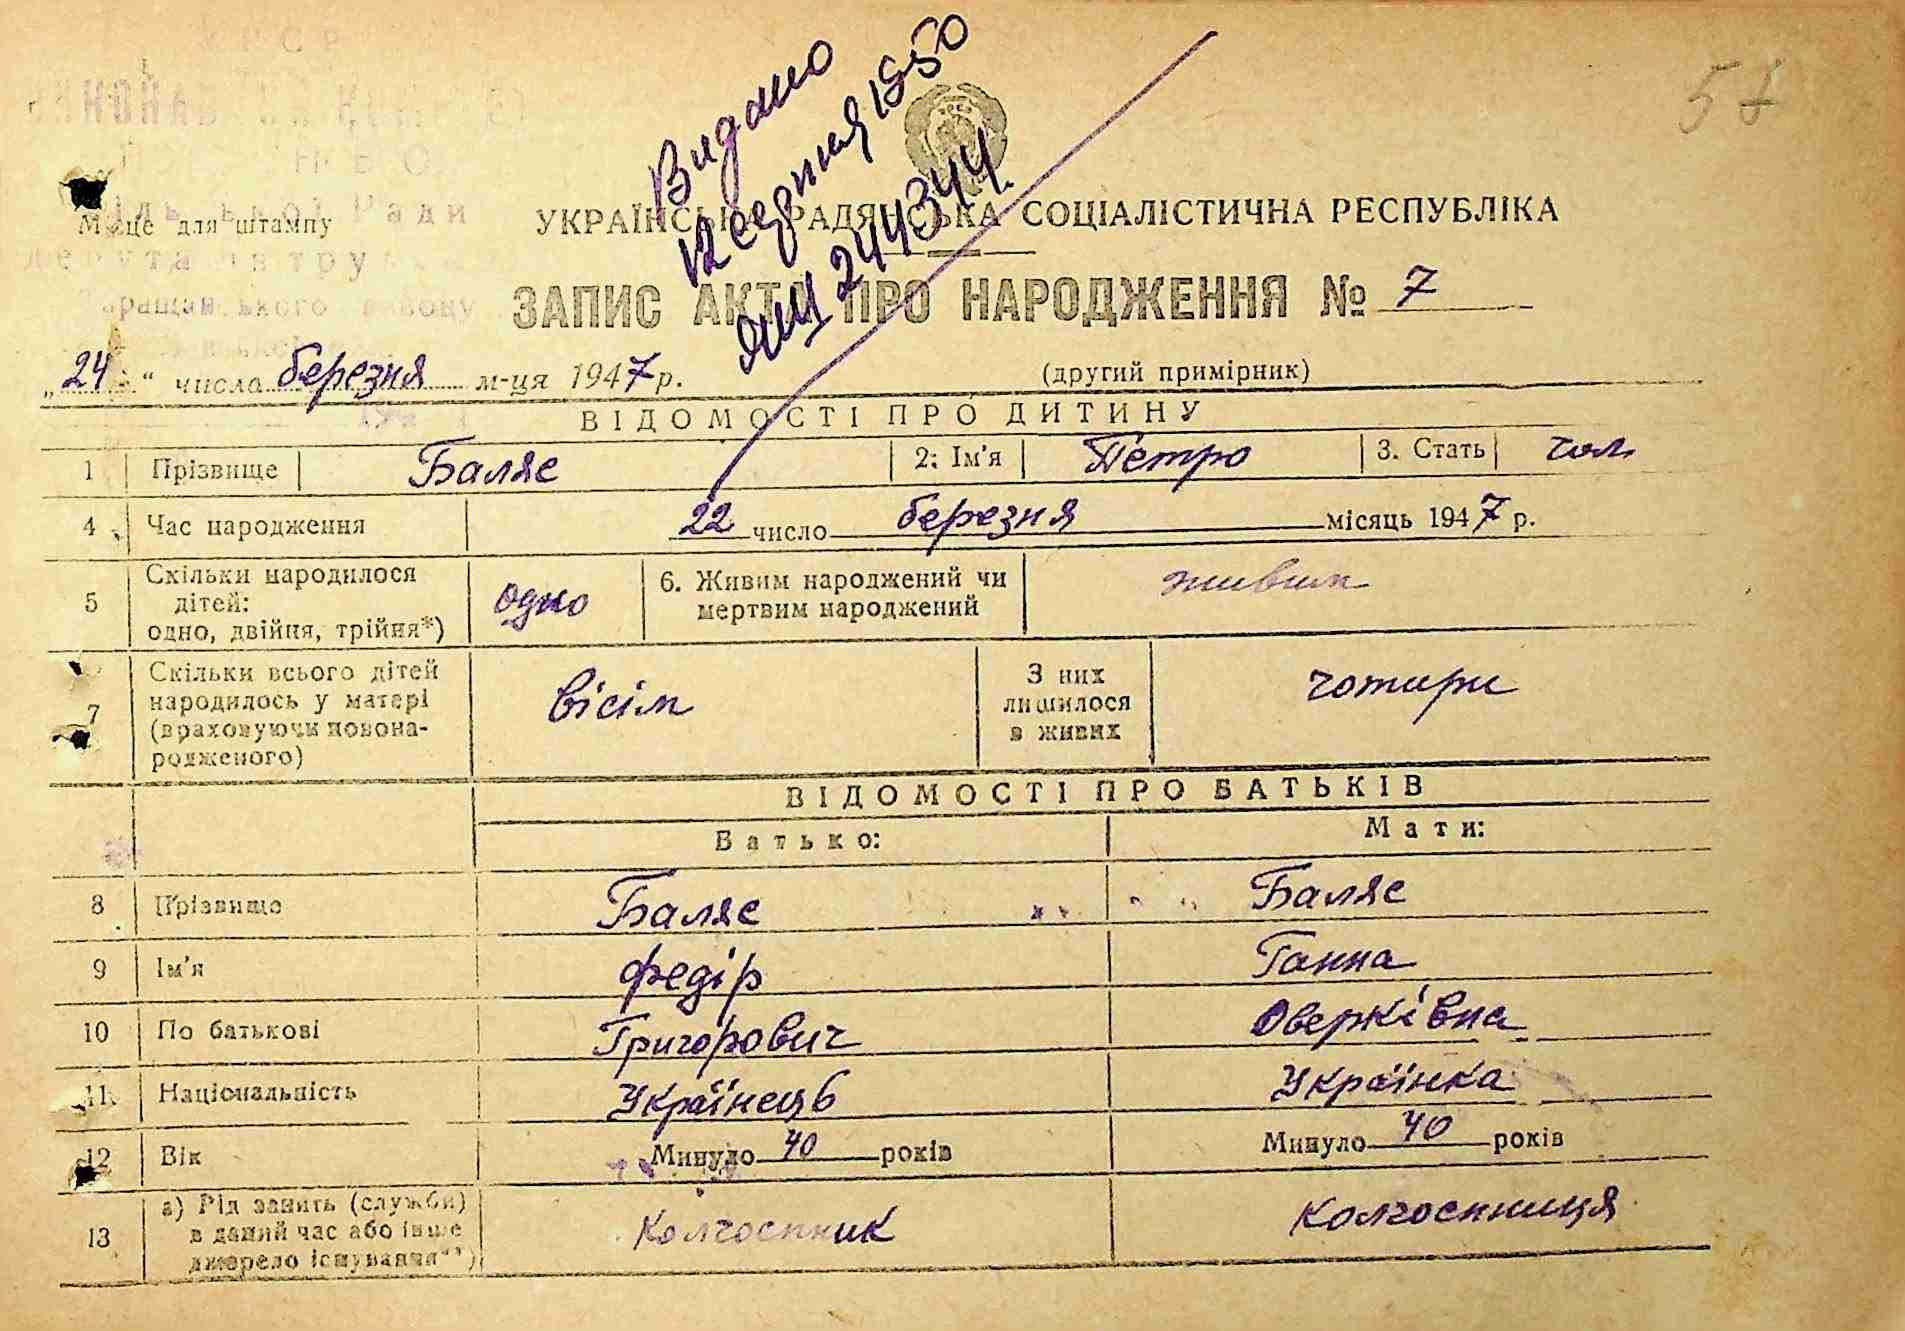 57
Видано
12 серпня 1950
ЯЩ 244344
Місце для штампу
УКРАЇНСЬКА РАДЯНСЬКА СОЦІАЛІСТИЧНА РЕСПУБЛІКА
ЗАПИС АКТА ПРО НАРОДЖЕННЯ № 7
„24“ числа березня м-ця 1947 р.
(другий примірник)
ВІДОМОСТІ ПРО ДИТИНУ
1 Прізвище Баляс 2. Ім'я Петро 3. Стать чол.
4 Час народження 22 число березня місяць 1947 р.
5 Скільки народилося дітей: одно, двійня, трійня*) одно 6. Живим народжений чи мертвим народжений живим
7 Скільки всього дітей народилось у матері (враховуючи новонародженого) вісім З них лишилося в живих чотири
ВІДОМОСТІ ПРО БАТЬКІВ
Батько: Мати:
8 Прізвище Баляс Баляс
9 Ім'я Федір Ганна
10 По батькові Григорович Оверківна
11. Національність Українець Українка
12 Вік Минуло 40 років Минуло 40 років
13 а) Рід занять (служби) в даний час або інше джерело існування**) Колгоспник Колгоспниця